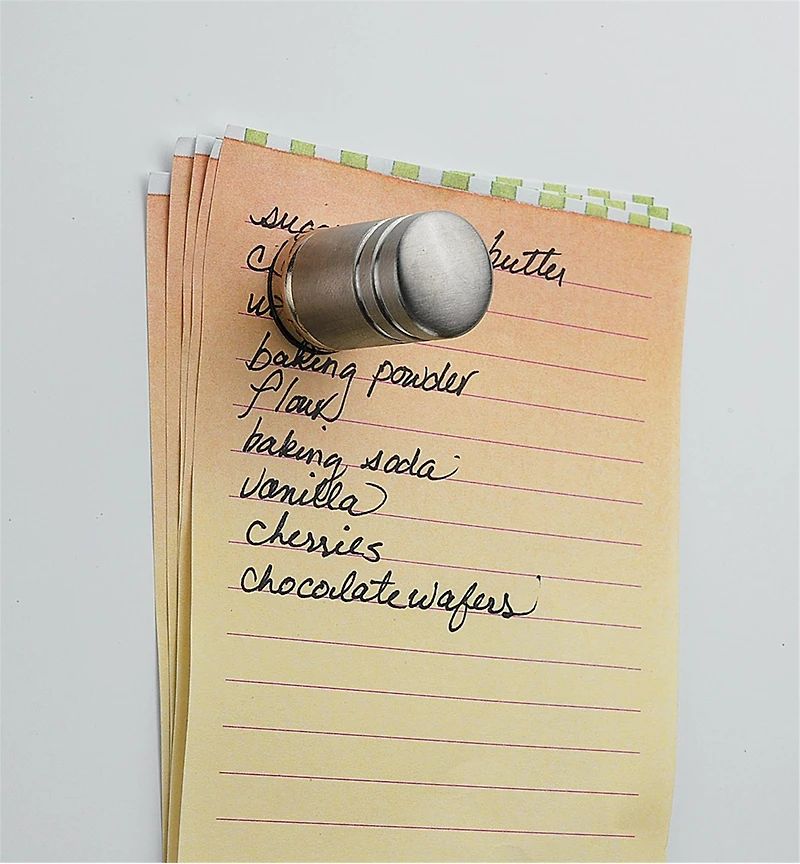 butter
baking powder
flour
baking soda
vanilla
cherries
chocolate wafers